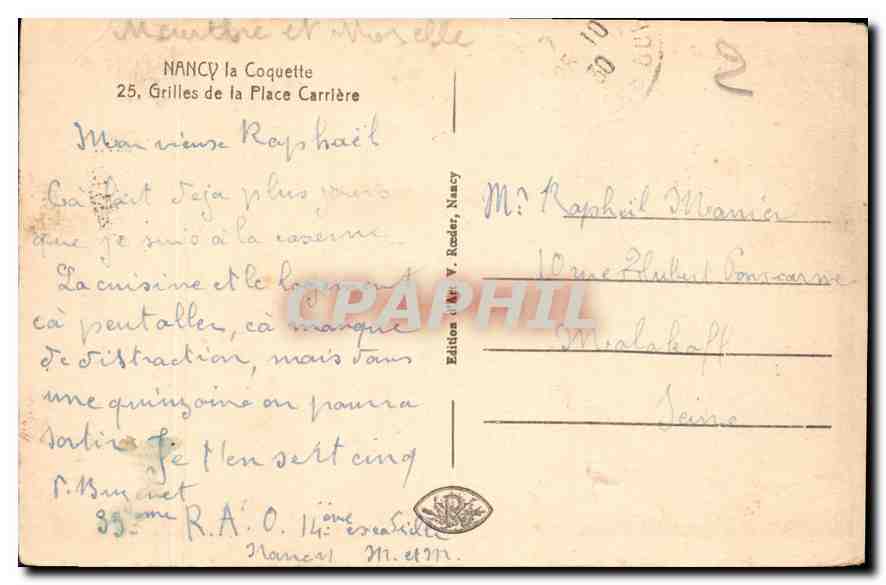 Meurthe et Moselle
NANCY la Coquette
25. Grilles de la Place Carrière
Mon vieux Raphaël
Cà fait deja plus jours
que je suis à la caserne
La cuisine et le logement
cà peut aller, cà manque
de distraction, mais dans
une quinzaine on pourra
sortir Je t'en sert cinq
35eme R.A.O. 14eme escadrille
Nancy M. et M.
Edition d'Art V. Rœder, Nancy
R
10
30
2
Mr Raphël
10 rue Hubert
Malakoff
Seine
CPAPHIL